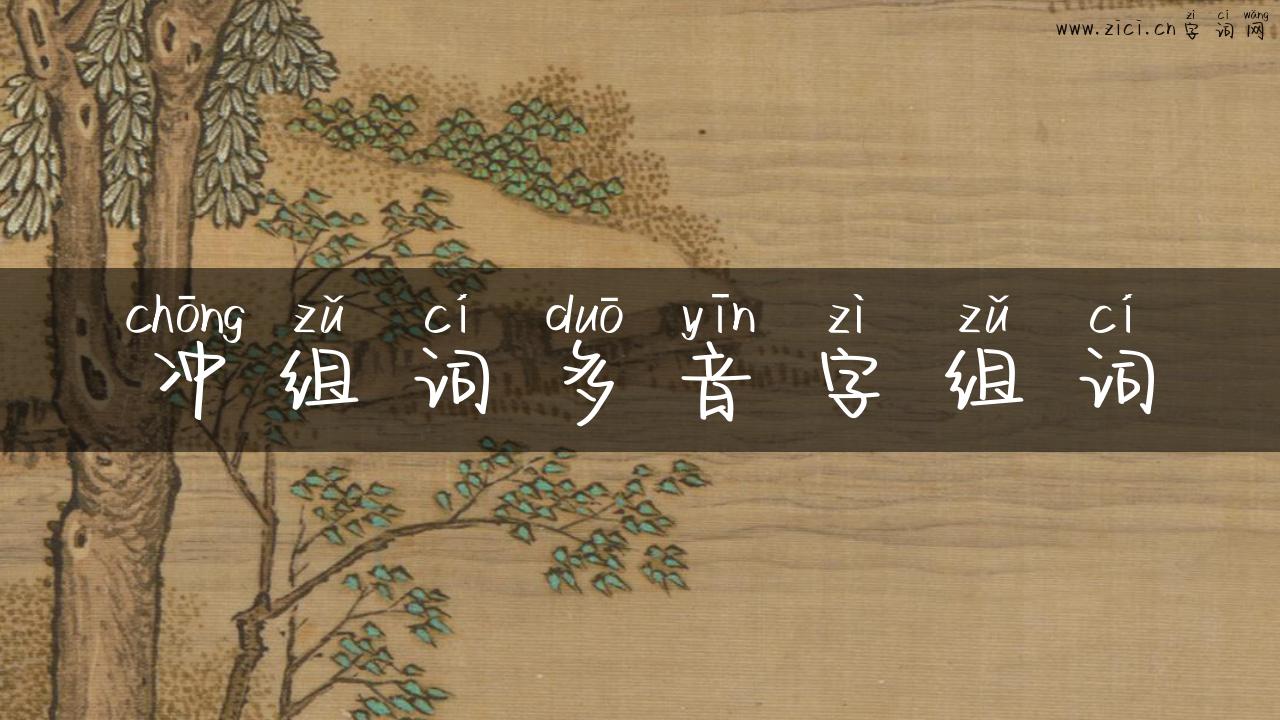 zì cí wǎng
www.zici.cn 字词网
chōng zǔ cí duō yīn zì zǔ cí
冲组词多音字组词